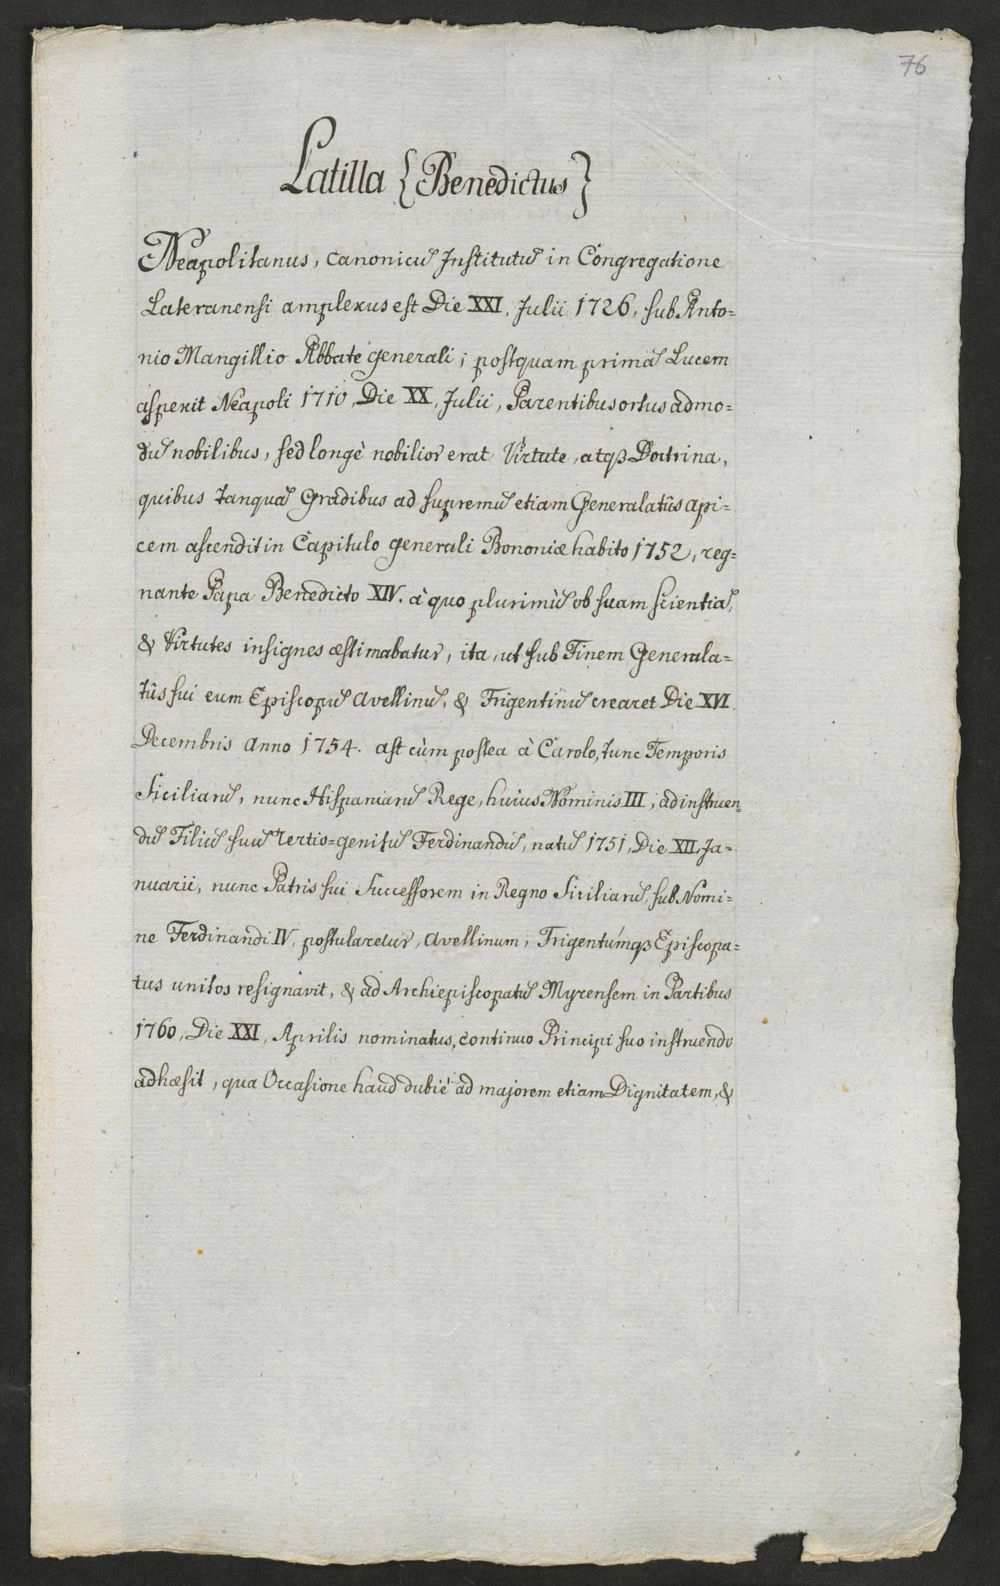 76
Latilla {Benedictus}
Neapolitanus, canonicu᷉ Institutu᷉ in Congregatione
Lateranensi amplexus est Die XXI. Julii 1726, sub Anto=
nio Mangillio Abbate generali; postquam prima᷉ Lucem
aspexit Neapoli 1710, Die XX, Julii, Parentibus ortus admo=
du᷉ nobilibus, sed longè nobilior erat Virtute, atqꝫ Doctrina,
quibus tanqua᷉ Gradibus ad supremu᷉ etiam Generalatûs api=
cem ascendit in Capitulo generali Bononiæ habito 1752, reg=
nante Papa Benedicto XIV. à quo plurimu᷉ ob suam scientia᷉,
& Virtutes insignes æstimabatur, ita, ut sub Finem Generala=
tûs sui eum Episcopu᷉ Avellinu᷉, & Frigentinu᷉ crearet Die XVI.
Decembris Anno 1754. ast cùm postea à Carolo, tunc Temporis
Siciliaru᷉, nunc Hispaniaru᷉ Rege, huius Nominis III, ad instruen=
du᷉ Filiu᷉ suu᷉ tertio=genitu᷉ Ferdinandu᷉, natu᷉ 1751, Die XII, Ja=
nuarii, nunc Patris sui Successorem in Regno Siciliaru᷉, sub Nomi=
ne Ferdinandi IV, postularetur, Avellinum, Frigentúmqꝫ Episcopa=
tus unitos resignavit, & ad Archiepiscopatu᷉ Myrensem in Partibus
1760, Die XXI, Aprilis nominatus, continuo Principi suo instruendo
adhæsit, qua Occasione haud dubiè ad majorem etiam Dignitatem, &